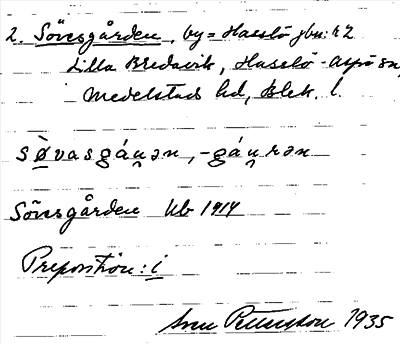 2. Sövesgården, by = Hasslö jbn: r 2
Lilla Bredavik, Hasslö-Aspö sn,
Medelstads hd, Blek. l.
sø̀vasgáu̯ən, -gáu̯rən
Sövesgården Ub 1914
Preposition: i
Sven Pettersson 1935